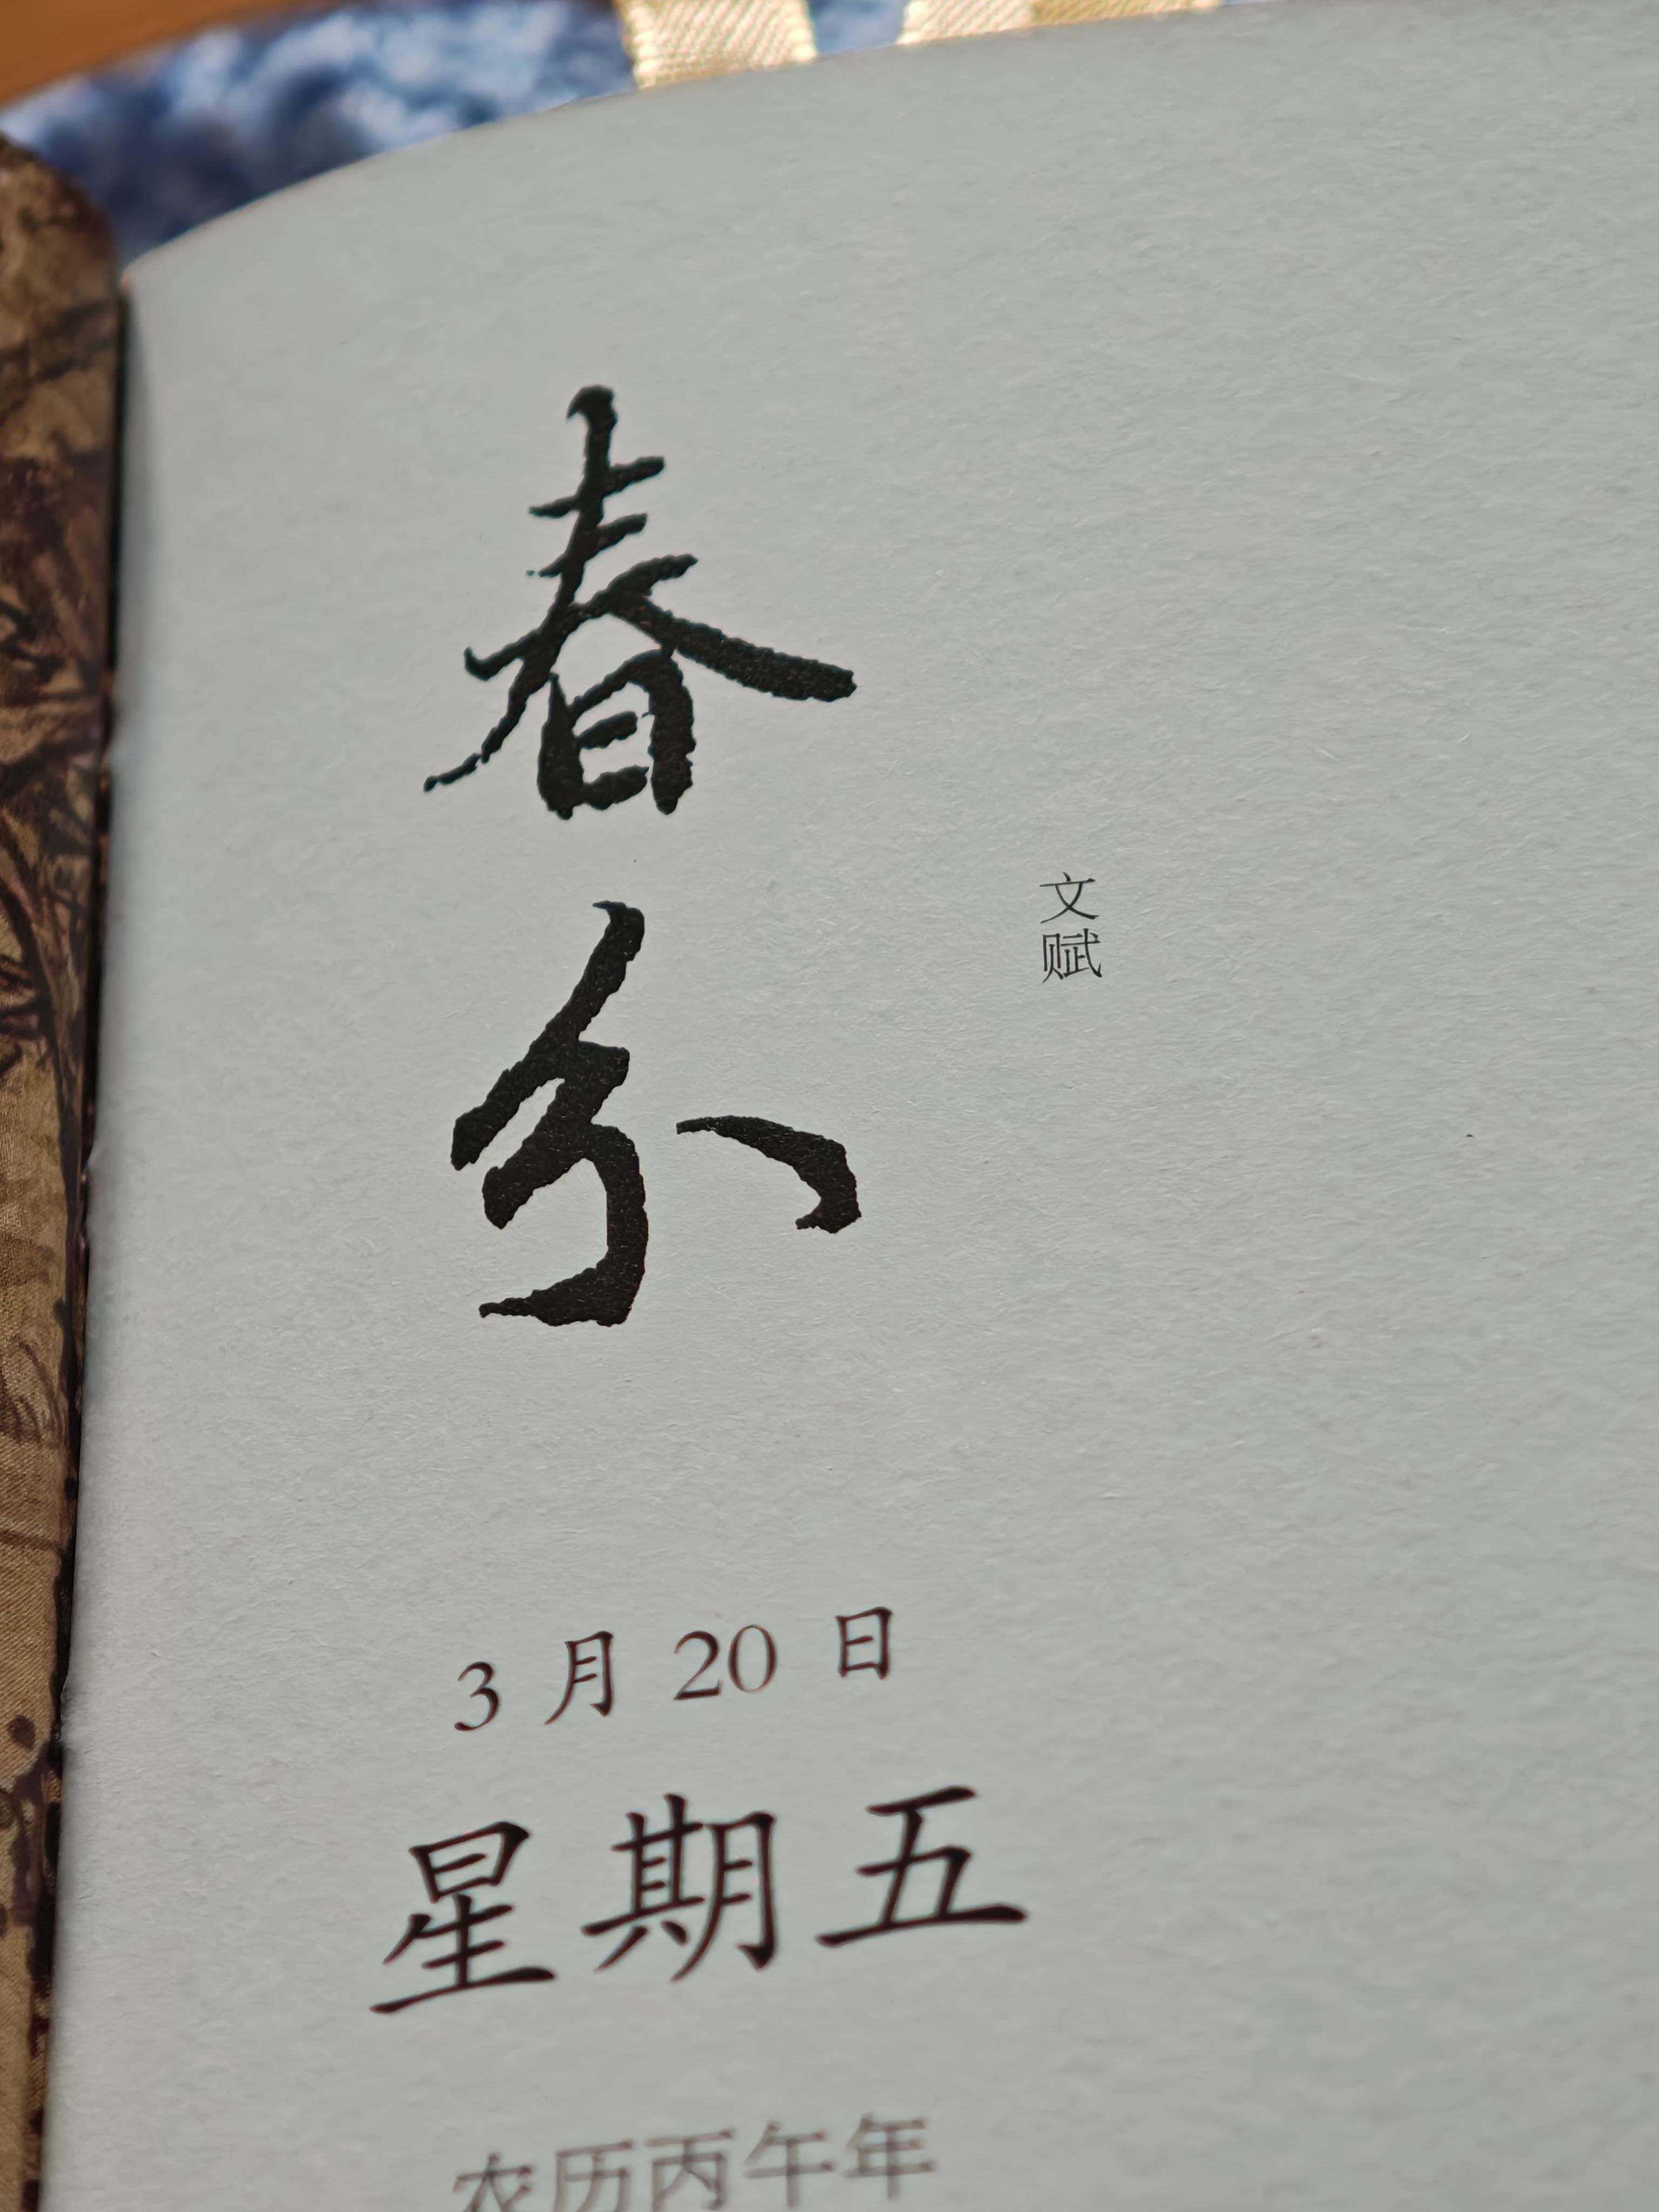 春分
文赋
3月20日
星期五
农历丙午年